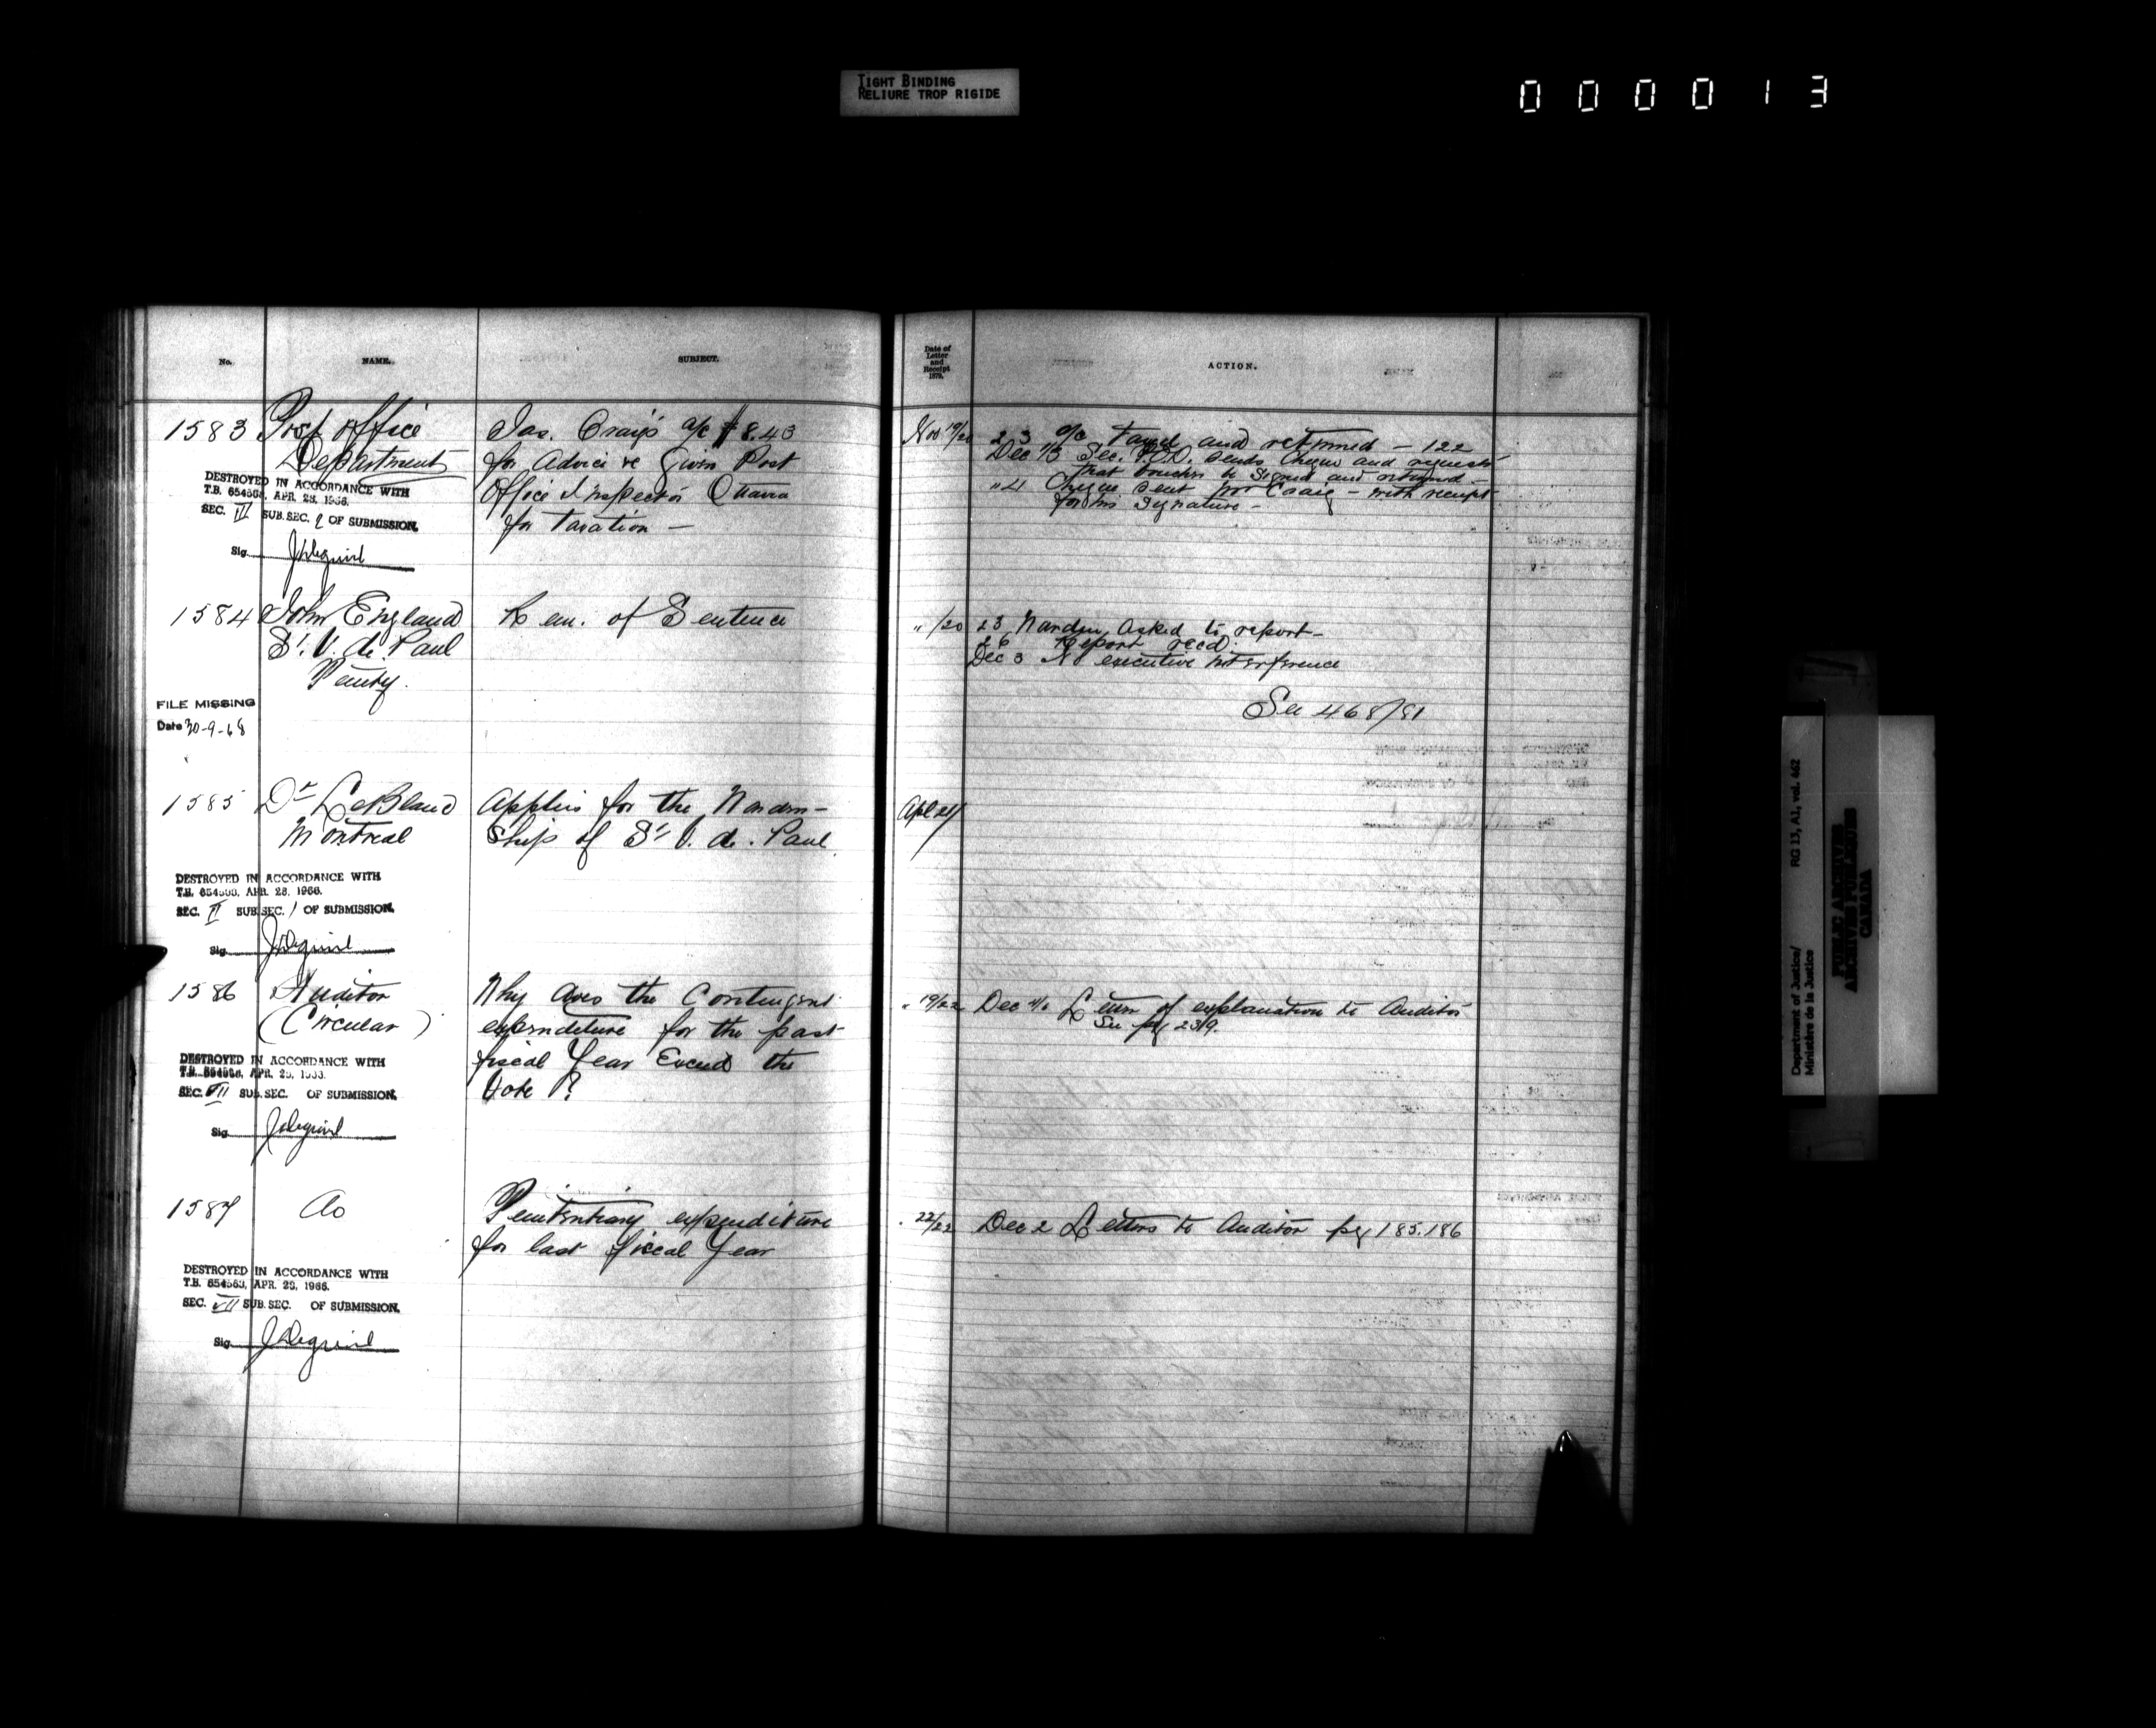 TIGHT BINDING
RELIURE TROP RIGIDE
000013
No. NAME. SUBJECT.
1583 Post Office
Department
Jas. Craig's a/c $8.43
for advice re given Post
Office Inspector Ottawa
for taxation —
DESTROYED IN ACCORDANCE WITH
T.B. 654563, APR. 28, 1966.
SEC. III SUB. SEC. 2 OF SUBMISSION.
Sig
1584 John England
St. V. de Paul
Penty.
Rem. of Sentence
FILE MISSING
Date 30-9-68
1585 Dr LeBlanc
Montreal
Applies for the Warden-
ship of St V. de. Paul
DESTROYED IN ACCORDANCE WITH
T.B. 654563, APR. 28, 1966.
SEC. II SUB. SEC. 1 OF SUBMISSION.
Sig
1586 Auditor
(Circular)
Why does the Contingent
expenditure for the past
fiscal Year Exceed the
Vote?
DESTROYED IN ACCORDANCE WITH
T.B. 654563, APR. 28, 1966.
SEC. VII SUB. SEC. OF SUBMISSION.
Sig
1587 do
Penitentiary expenditure
for last fiscal Year
DESTROYED IN ACCORDANCE WITH
T.B. 654563, APR. 28, 1966.
SEC. VII SUB. SEC. OF SUBMISSION.
Sig
Date of
Letter
and
Receipt
1879.
ACTION.
Nov 19/20 23 a/c taxed and returned — 122
Dec 1/3 Sec. P.O.D. sends cheque and requests
that voucher be signed and returned —
" 4 Cheque sent Mr Craig — with receipt
for his signature —
" /20 23 Warden asked to report —
26 Report recd.
Dec 3 No executive interference
See 468/81
" 19/22 Dec 4/6 Letter of explanation to Auditor
See pg 239.
22/22 Dec 2 Letters to Auditor pg 185.186
Department of Justice/
Ministère de la Justice
RG 13, A1, vol. 462
PUBLIC ARCHIVES
ARCHIVES PUBLIQUES
CANADA